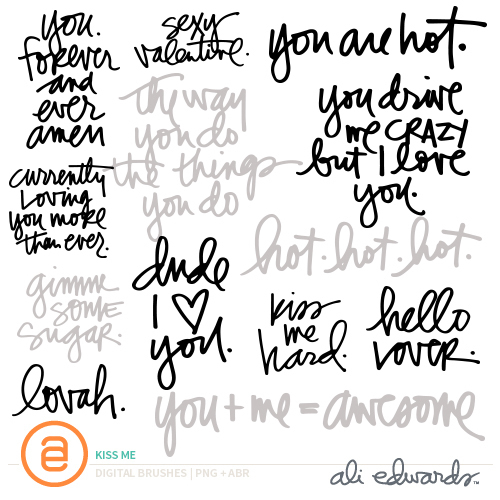 you.
forever
and
ever
amen
sexy
valentine.
you are hot.
the way
you do
the things
you do
you drive
me CRAZY
but I love
you.
currently
loving
you more
than ever.
hot. hot. hot.
gimme
some
sugar.
dude
I ♡
you.
kiss
me
hard.
hello
lover.
lovah.
you + me = awesome
a
KISS ME
DIGITAL BRUSHES | PNG + ABR
ali edwards™